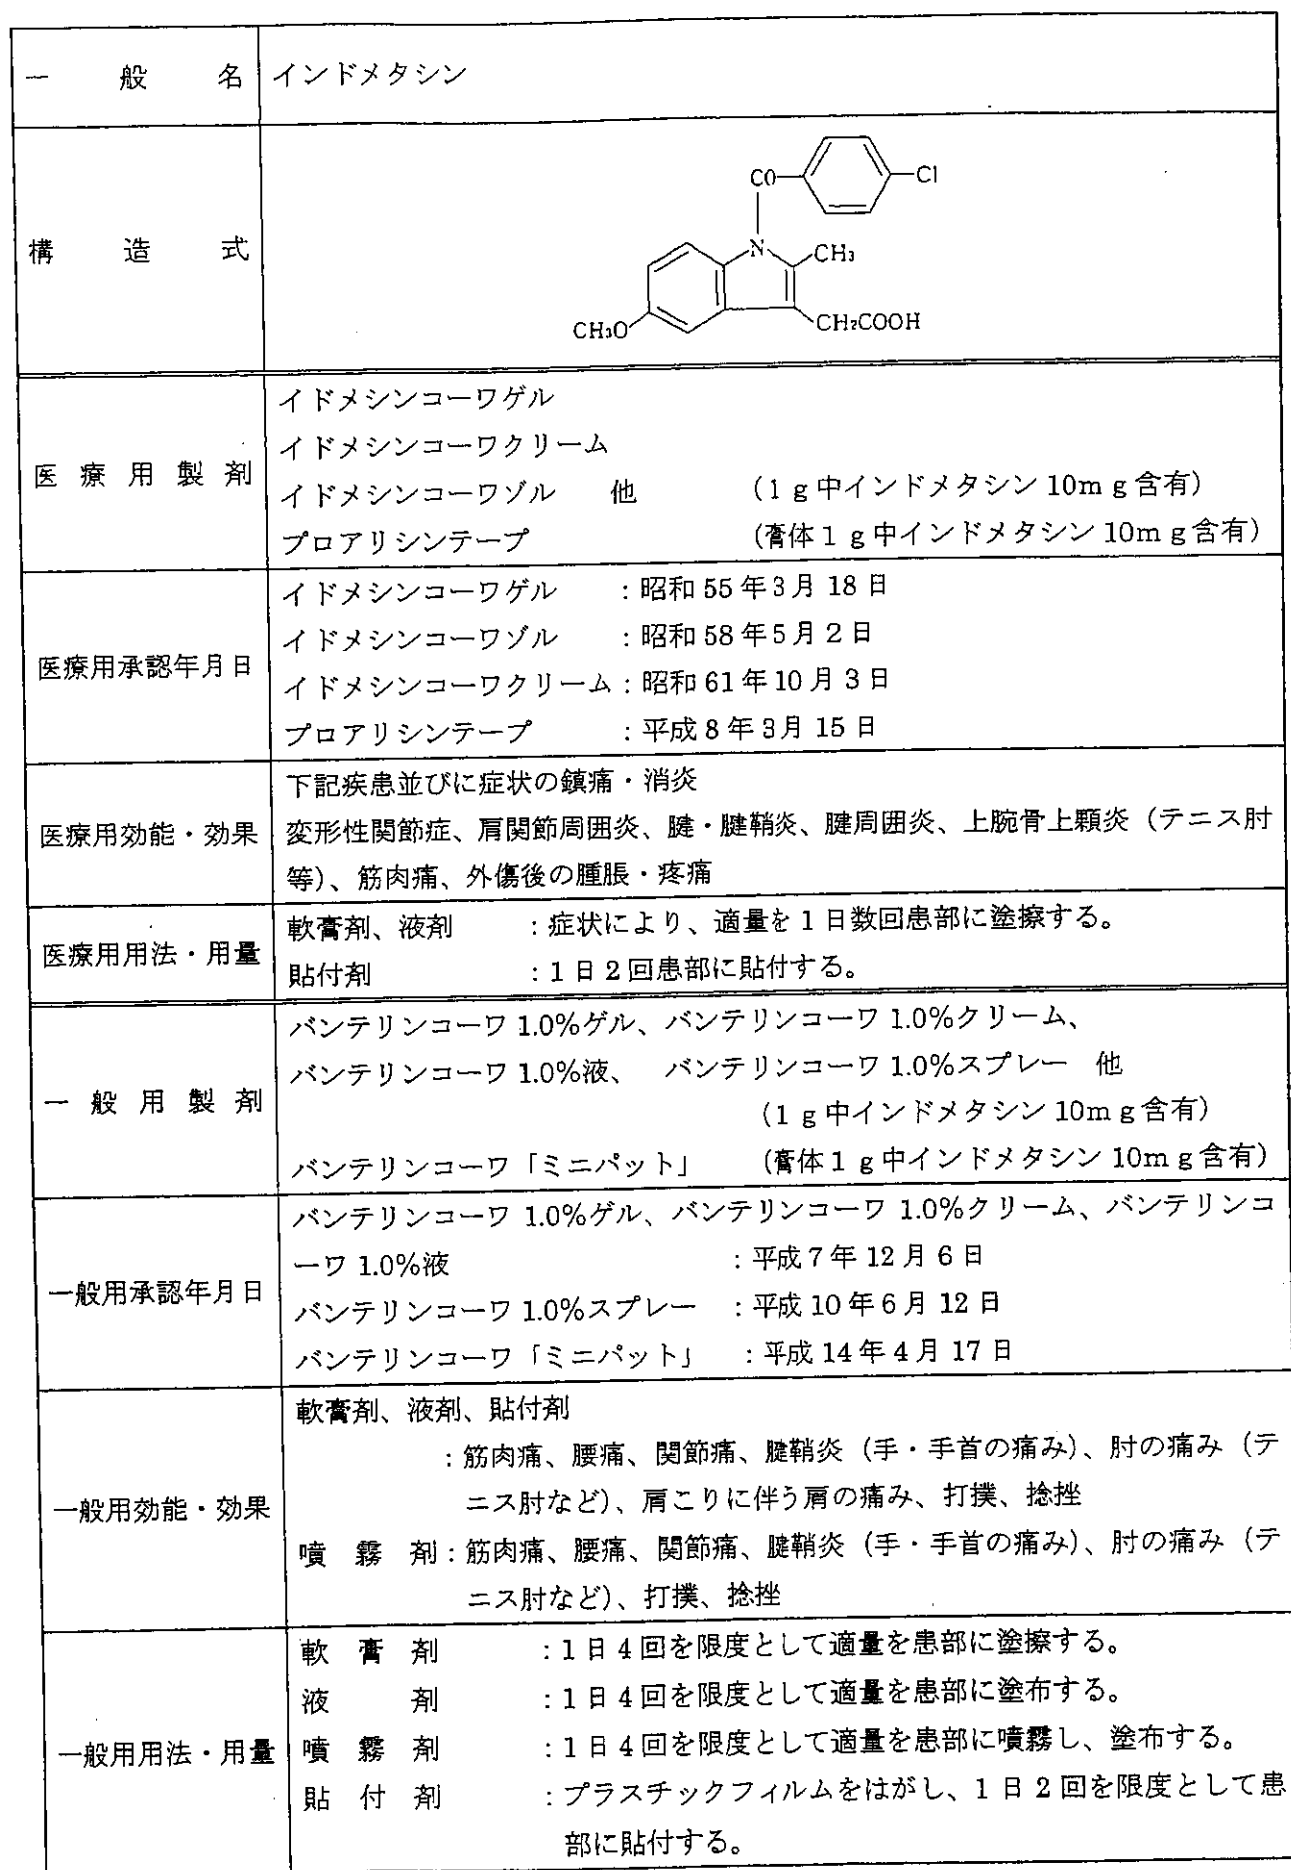 一般名 インドメタシン
構造式
CO Cl
N CH₃
CH₃O CH₂COOH
イドメシンコーワゲル
イドメシンコーワクリーム
医療用製剤 イドメシンコーワゾル 他 (1g中インドメタシン10mg含有)
プロアリシンテープ (膏体1g中インドメタシン10mg含有)
イドメシンコーワゲル :昭和55年3月18日
イドメシンコーワゾル :昭和58年5月2日
医療用承認年月日 イドメシンコーワクリーム:昭和61年10月3日
プロアリシンテープ :平成8年3月15日
下記疾患並びに症状の鎮痛・消炎
医療用効能・効果 変形性関節症、肩関節周囲炎、腱・腱鞘炎、腱周囲炎、上腕骨上顆炎(テニス肘
等)、筋肉痛、外傷後の腫脹・疼痛
医療用用法・用量 軟膏剤、液剤 :症状により、適量を1日数回患部に塗擦する。
貼付剤 :1日2回患部に貼付する。
バンテリンコーワ1.0%ゲル、バンテリンコーワ1.0%クリーム、
バンテリンコーワ1.0%液、 バンテリンコーワ1.0%スプレー 他
一般用製剤 (1g中インドメタシン10mg含有)
バンテリンコーワ「ミニパット」 (膏体1g中インドメタシン10mg含有)
バンテリンコーワ1.0%ゲル、バンテリンコーワ1.0%クリーム、バンテリンコ
ーワ1.0%液 :平成7年12月6日
一般用承認年月日 バンテリンコーワ1.0%スプレー :平成10年6月12日
バンテリンコーワ「ミニパット」 :平成14年4月17日
軟膏剤、液剤、貼付剤
:筋肉痛、腰痛、関節痛、腱鞘炎(手・手首の痛み)、肘の痛み(テ
一般用効能・効果 ニス肘など)、肩こりに伴う肩の痛み、打撲、捻挫
噴霧剤:筋肉痛、腰痛、関節痛、腱鞘炎(手・手首の痛み)、肘の痛み(テ
ニス肘など)、打撲、捻挫
軟膏剤 :1日4回を限度として適量を患部に塗擦する。
液剤 :1日4回を限度として適量を患部に塗布する。
一般用用法・用量 噴霧剤 :1日4回を限度として適量を患部に噴霧し、塗布する。
貼付剤 :プラスチックフィルムをはがし、1日2回を限度として患
部に貼付する。